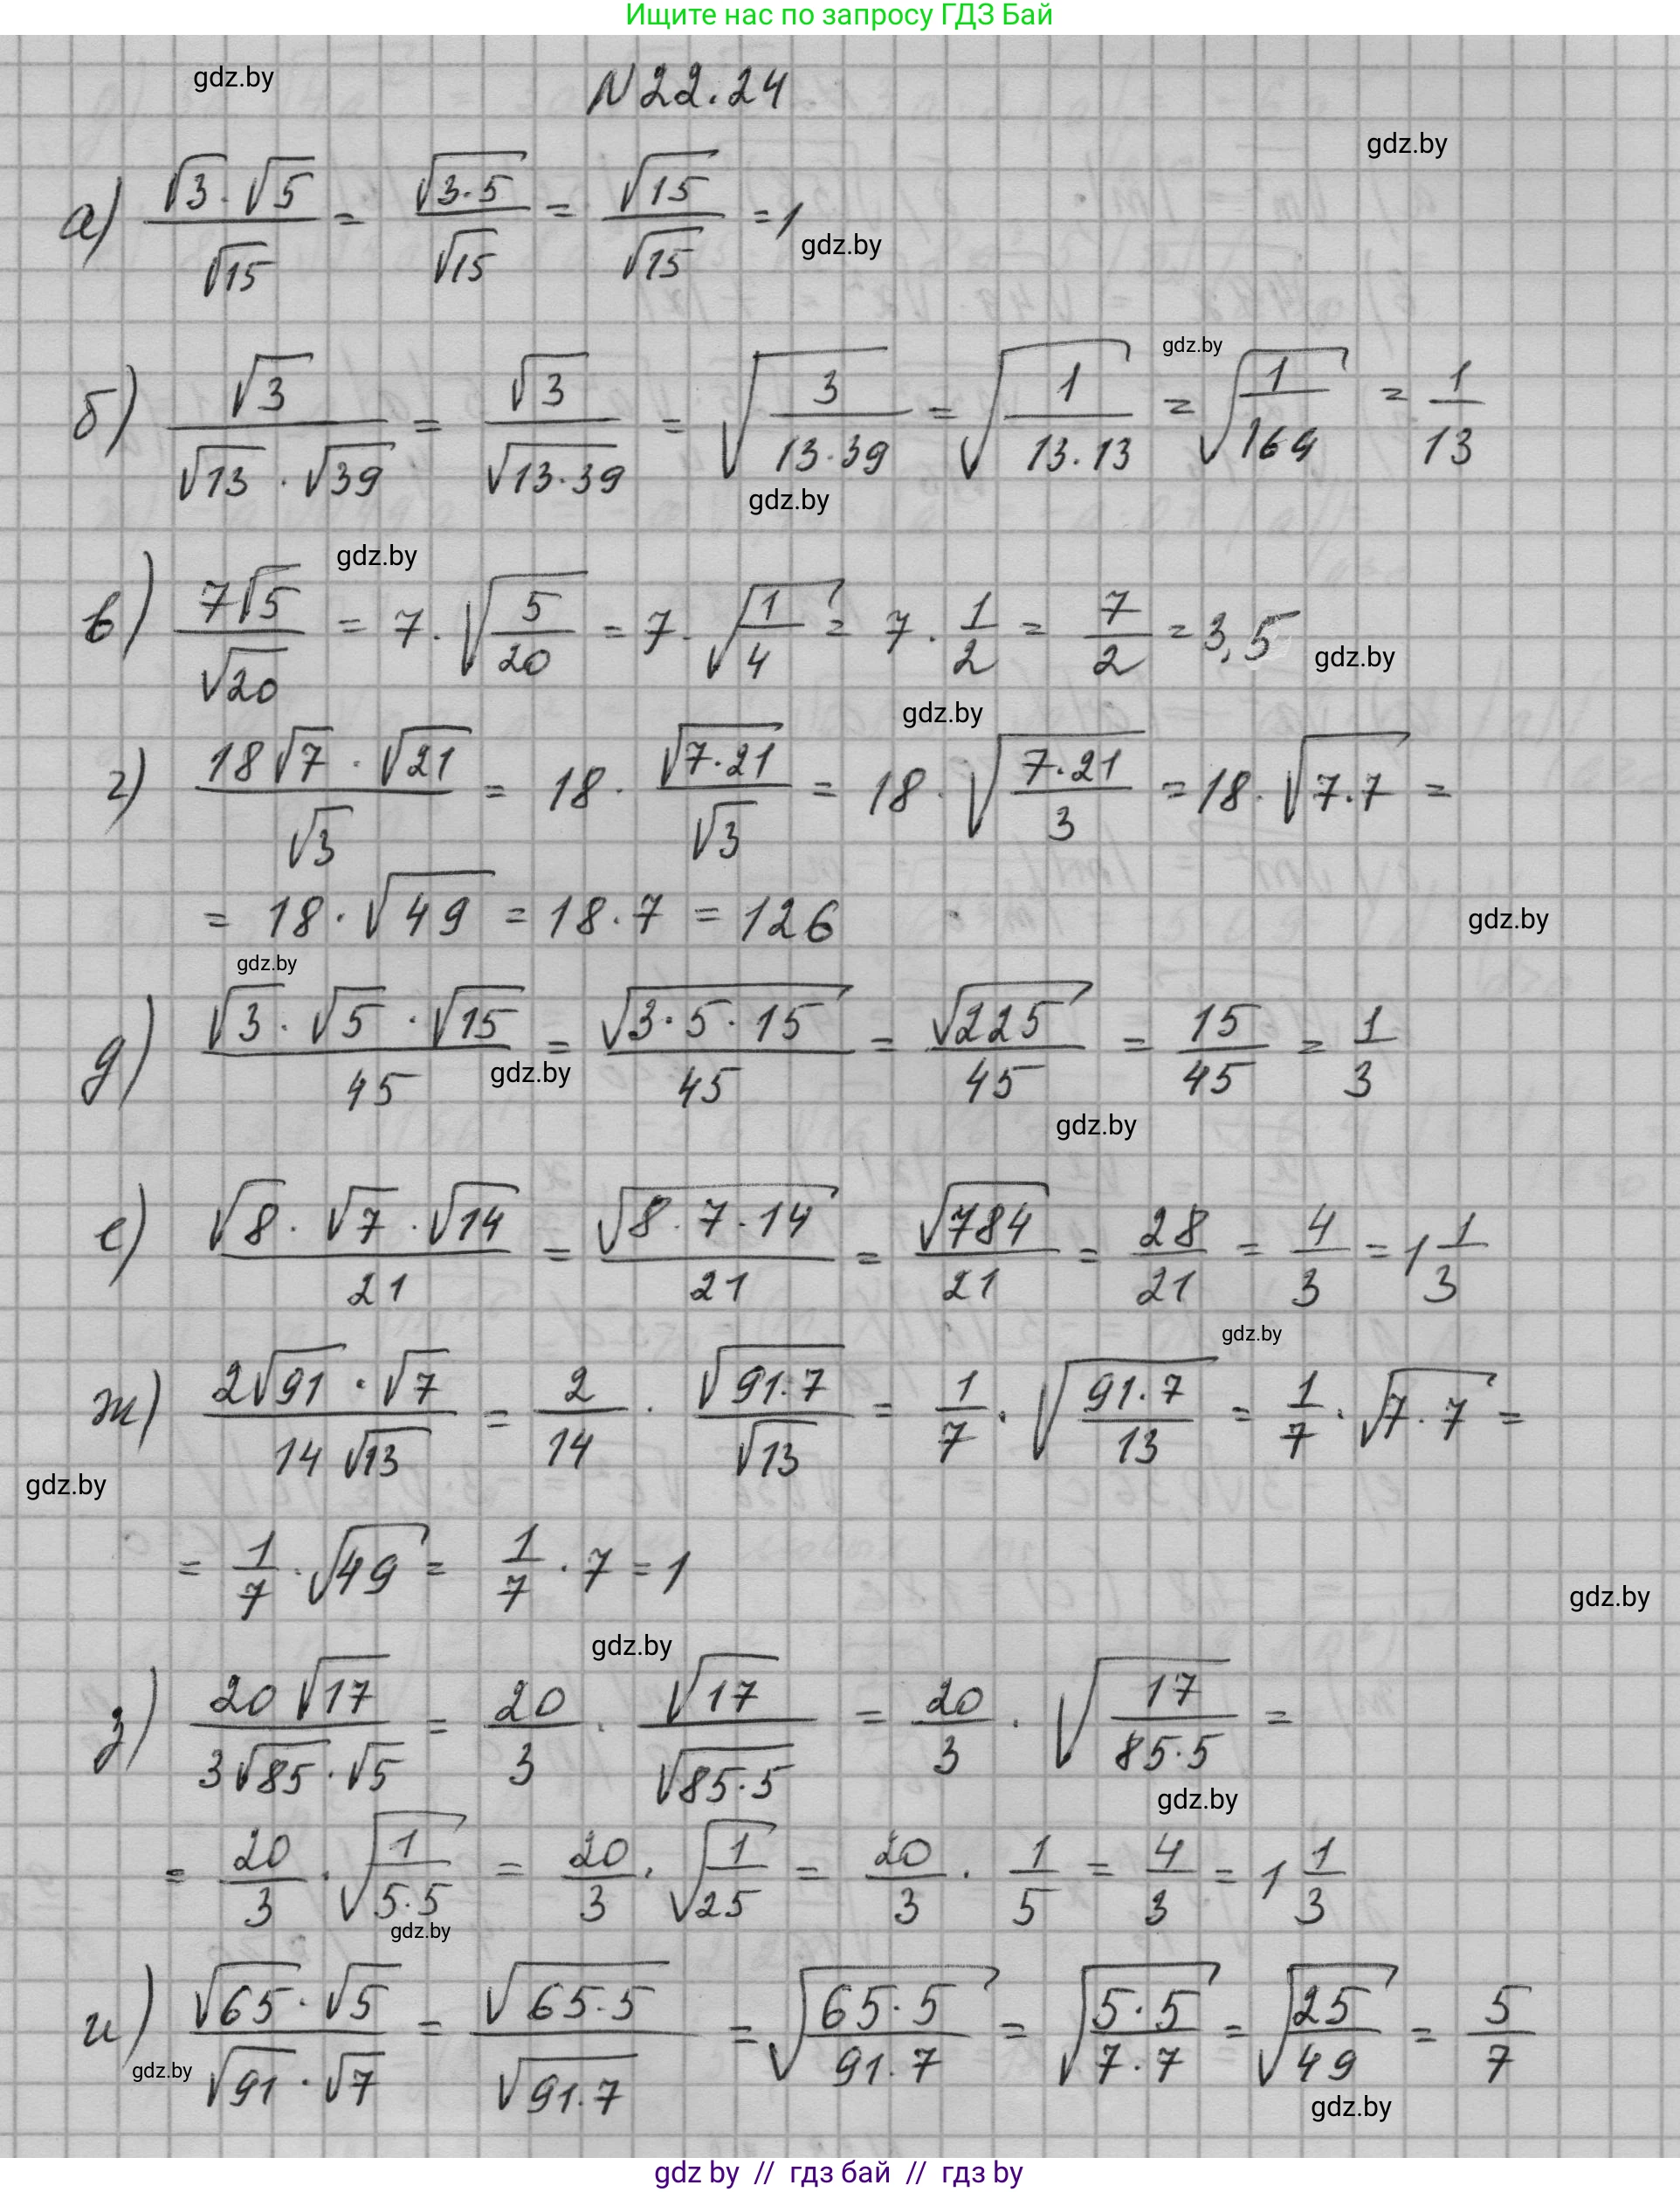 Ищите нас по запросу ГДЗ Бай
gdz.by
N 22.24
gdz.by
а) (√3 · √5)/√15 = √(3·5)/√15 = √15/√15 = 1
gdz.by
gdz.by
б) √3/(√13 · √39) = √3/√(13·39) = √(3/(13·39)) = √(1/(13·13)) = √(1/169) = 1/13
gdz.by
gdz.by
в) 7√5/√20 = 7·√(5/20) = 7·√(1/4) = 7·1/2 = 7/2 = 3,5
gdz.by
gdz.by
г) (18√7 · √21)/√3 = 18 · √(7·21)/√3 = 18 · √((7·21)/3) = 18 · √(7·7) =
= 18 · √49 = 18 · 7 = 126
gdz.by
gdz.by
д) (√3 · √5 · √15)/45 = √(3·5·15)/45 = √225/45 = 15/45 = 1/3
gdz.by
gdz.by
е) (√8 · √7 · √14)/21 = √(8·7·14)/21 = √784/21 = 28/21 = 4/3 = 1 1/3
gdz.by
ж) (2√91 · √7)/(14√13) = 2/14 · √(91·7)/√13 = 1/7 · √((91·7)/13) = 1/7 · √(7·7) =
gdz.by
= 1/7 · √49 = 1/7 · 7 = 1
gdz.by
gdz.by
з) 20√17/(3√85 · √5) = 20/3 · √17/√(85·5) = 20/3 · √(17/(85·5)) =
gdz.by
= 20/3 · √(1/(5·5)) = 20/3 · √(1/25) = 20/3 · 1/5 = 4/3 = 1 1/3
gdz.by
и) (√65 · √5)/(√91 · √7) = √(65·5)/√(91·7) = √((65·5)/(91·7)) = √((5·5)/(7·7)) = √(25/49) = 5/7
gdz.by
gdz.by
gdz by // гдз бай // гдз by